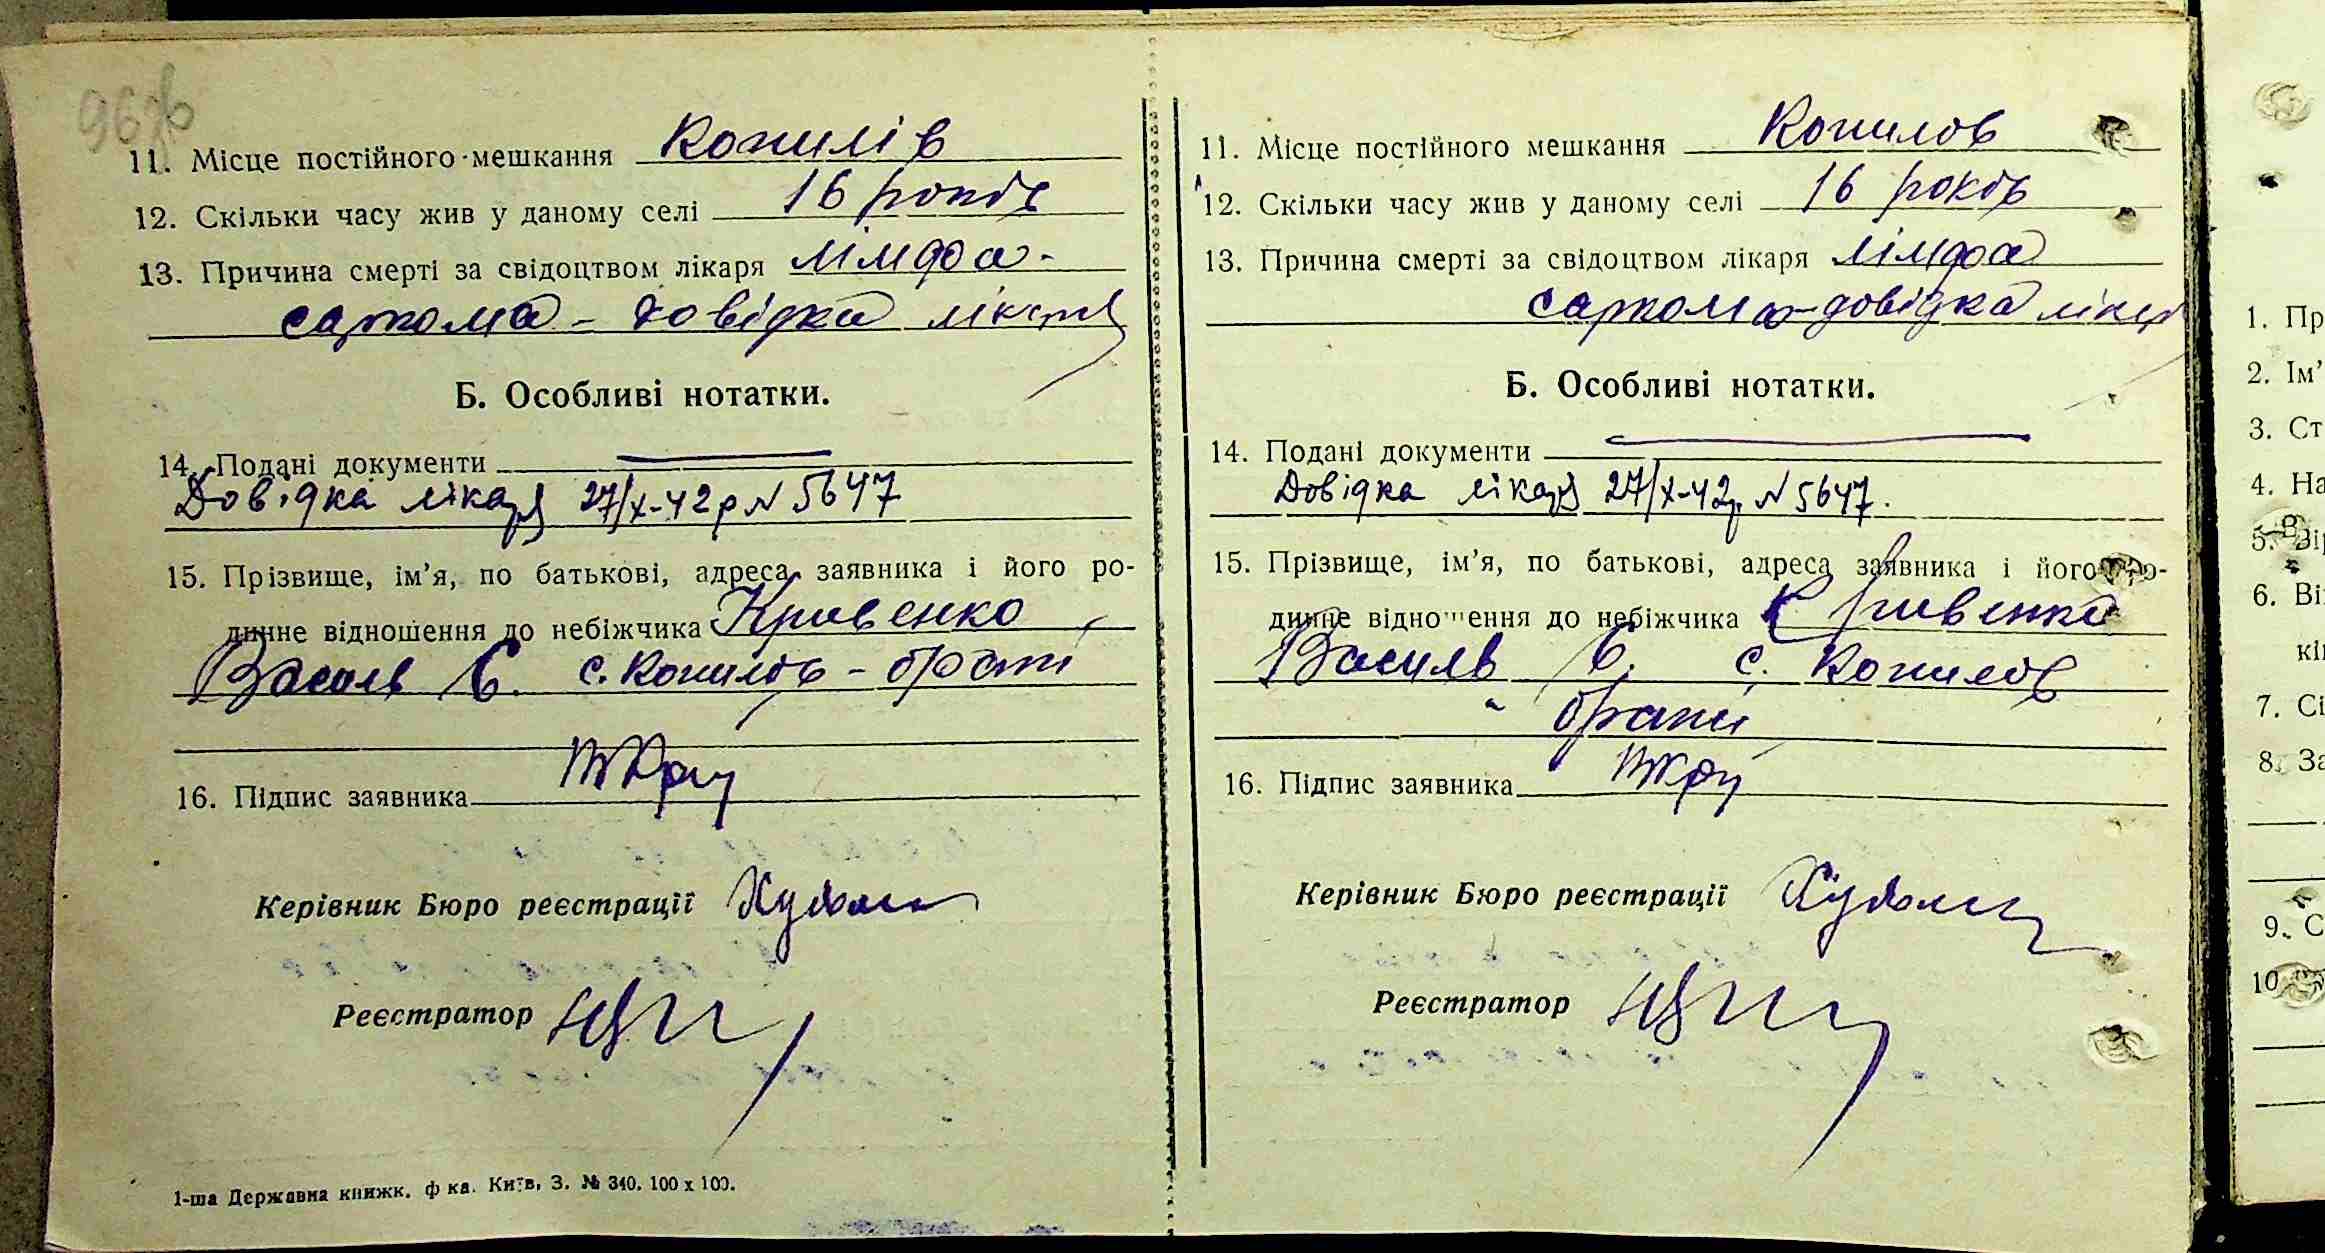 96зв
11. Місце постійного мешкання Копилів
12. Скільки часу жив у даному селі 16 років
13. Причина смерті за свідоцтвом лікаря лімфа-
саркома – довідка лікаря
Б. Особливі нотатки.
14. Подані документи
Довідка лікаря 27/X-42р N 5647
15. Прізвище, ім'я, по батькові, адреса заявника і його ро-
динне відношення до небіжчика Кривенко
Василь Є. с. Копилов – брат
16. Підпис заявника
Керівник Бюро реєстрації
Реєстратор
1-ша Державна книжк. ф ка. Київ, З. № 340. 100 х 100.
11. Місце постійного мешкання Копилов
12. Скільки часу жив у даному селі 16 років
13. Причина смерті за свідоцтвом лікаря лімфа
саркома-довідка лікар
Б. Особливі нотатки.
14. Подані документи
Довідка лікаря 27/X-42р. N 5647.
15. Прізвище, ім'я, по батькові, адреса заявника і його ро-
динне відношення до небіжчика Кривенко
Василь Є. с. Копилов
брат
16. Підпис заявника
Керівник Бюро реєстрації
Реєстратор
1. Пр
2. Ім'
3. Ст
4. На
5. Ві
6. Ві
кі
7. Сі
8. За
9. С
10